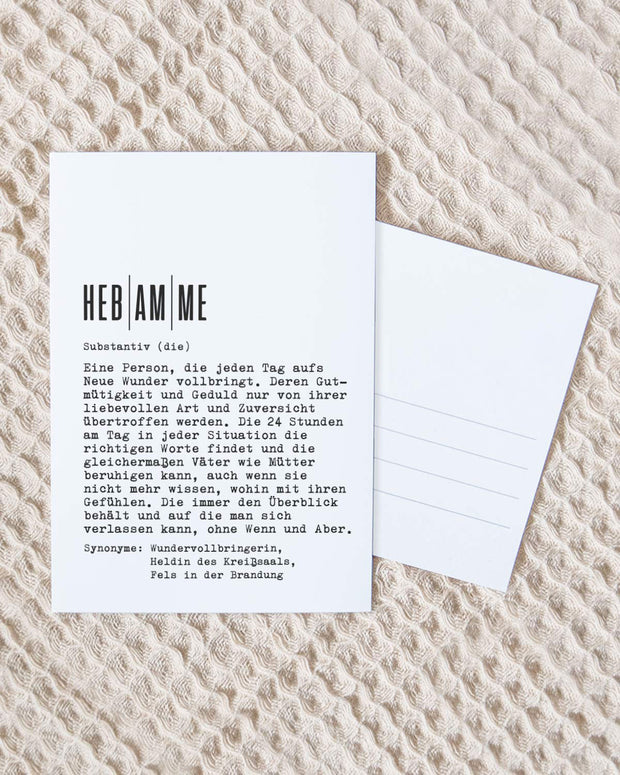 HEB|AM|ME
Substantiv (die)
Eine Person, die jeden Tag aufs
Neue Wunder vollbringt. Deren Gut-
mütigkeit und Geduld nur von ihrer
liebevollen Art und Zuversicht
übertroffen werden. Die 24 Stunden
am Tag in jeder Situation die
richtigen Worte findet und die
gleichermaßen Väter wie Mütter
beruhigen kann, auch wenn sie
nicht mehr wissen, wohin mit ihren
Gefühlen. Die immer den Überblick
behält und auf die man sich
verlassen kann, ohne Wenn und Aber.
Synonyme: Wundervollbringerin,
Heldin des Kreißsaals,
Fels in der Brandung